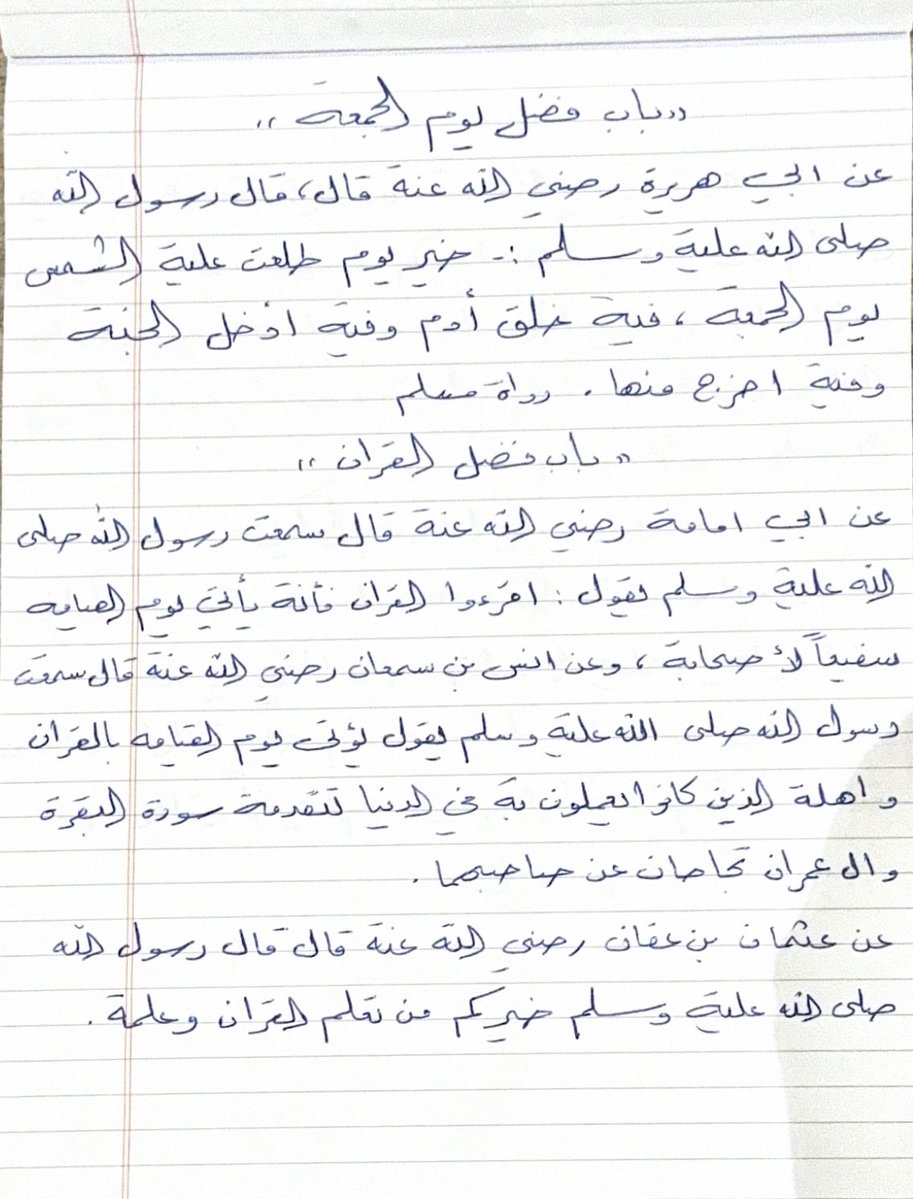 "باب فضل يوم الجمعة"
عن ابي هريرة رضي الله عنة قال، قال رسول الله
صلى الله علية وسلم :- خير يوم طلعت علية الشمس
يوم الجمعة، فية خلق أدم وفية ادخل الجنة
وفية اخرج منها. رواة مسلم
"باب فضل القران"
عن ابي امامة رضي الله عنة قال سمعت رسول الله صلى
الله علية وسلم يقول : اقرءوا القران فأنة يأتي يوم القيامه
شفيعاً لأصحابة، وعن انس بن سمعان رضي الله عنة قال سمعت
رسول الله صلى الله علية وسلم يقول يؤتى يوم القيامه بالقران
واهلة الذين كانوا يعملون بة في الدنيا تتقدمة سورة البقرة
وال عمران تحاجان عن صاحبهما.
عن عثمان بن عفان رضي الله عنة قال قال رسول الله
صلى الله علية وسلم خيركم من تعلم القران وعلمة.